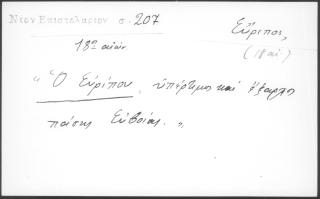 Νεον Επιστολαριον σ. 207
Εὔριπος,
18ος αἰών
(18 αἰ)
"Ὁ Εὐρίπου, ὑπέρτιμος καί ἔξαρχος
πάσης Εὐβοίας."